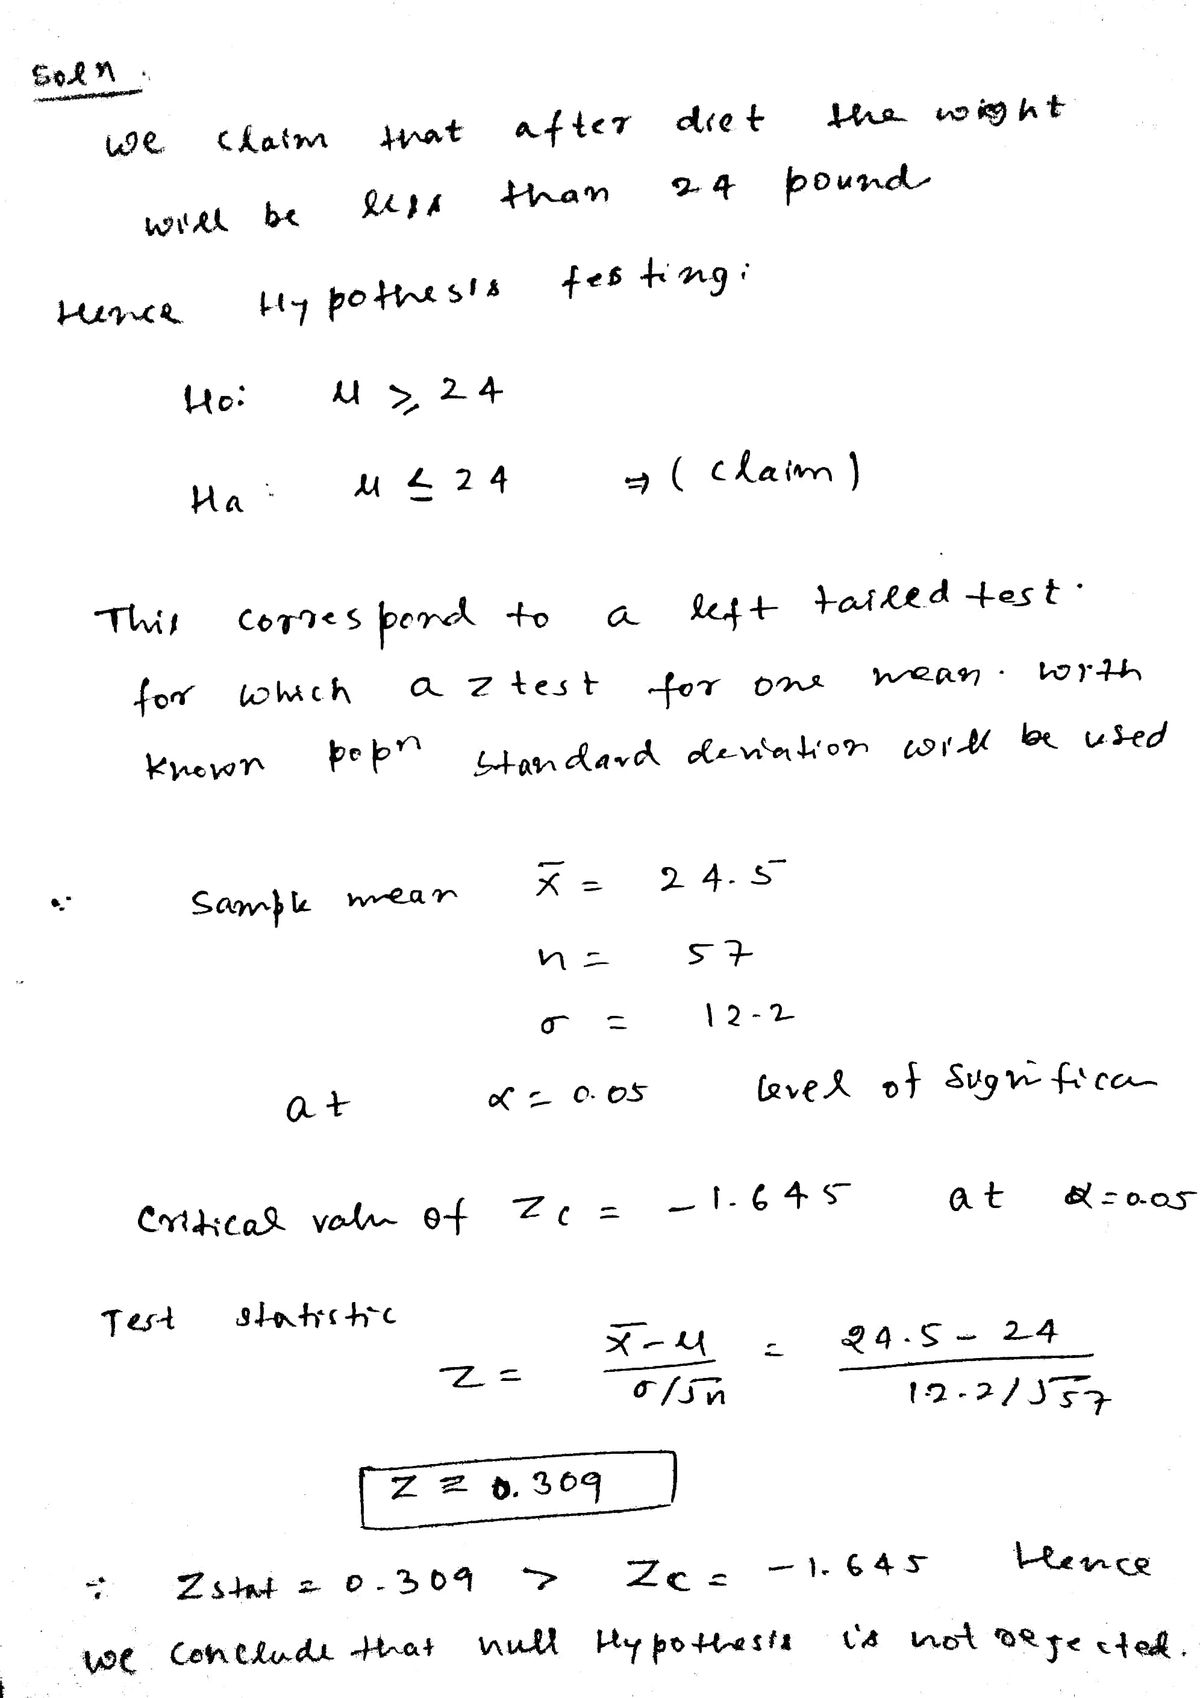 Soln.
we claim that after diet the wight
will be less than 24 pound
Hence Hypothesis testing:
Ho: μ ≥ 24
Ha: μ ≤ 24 ⇒ (claim)
This correspond to a left tailed test.
for which a z test for one mean. with
known popn standard deviation will be used
∵ Sample mean x̄ = 24.5
n = 57
σ = 12.2
at α = 0.05 level of significan
Critical valu of Zc = -1.645 at α=0.05
Test statistic
Z = (x̄-μ)/(σ/√n) = (24.5-24)/(12.2/√57)
Z ≅ 0.309
∵ Zstat = 0.309 > Zc = -1.645 Hence
we conclude that null Hypothesis is not rejected.